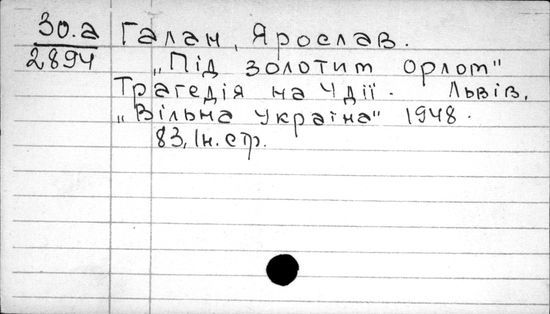 30.а Галан, Ярослав.
2894 „Під золотим орлом"
Трагедія на 4 дії. Львів,
„Вільна Україна" 1948.
83, 1н. стр.